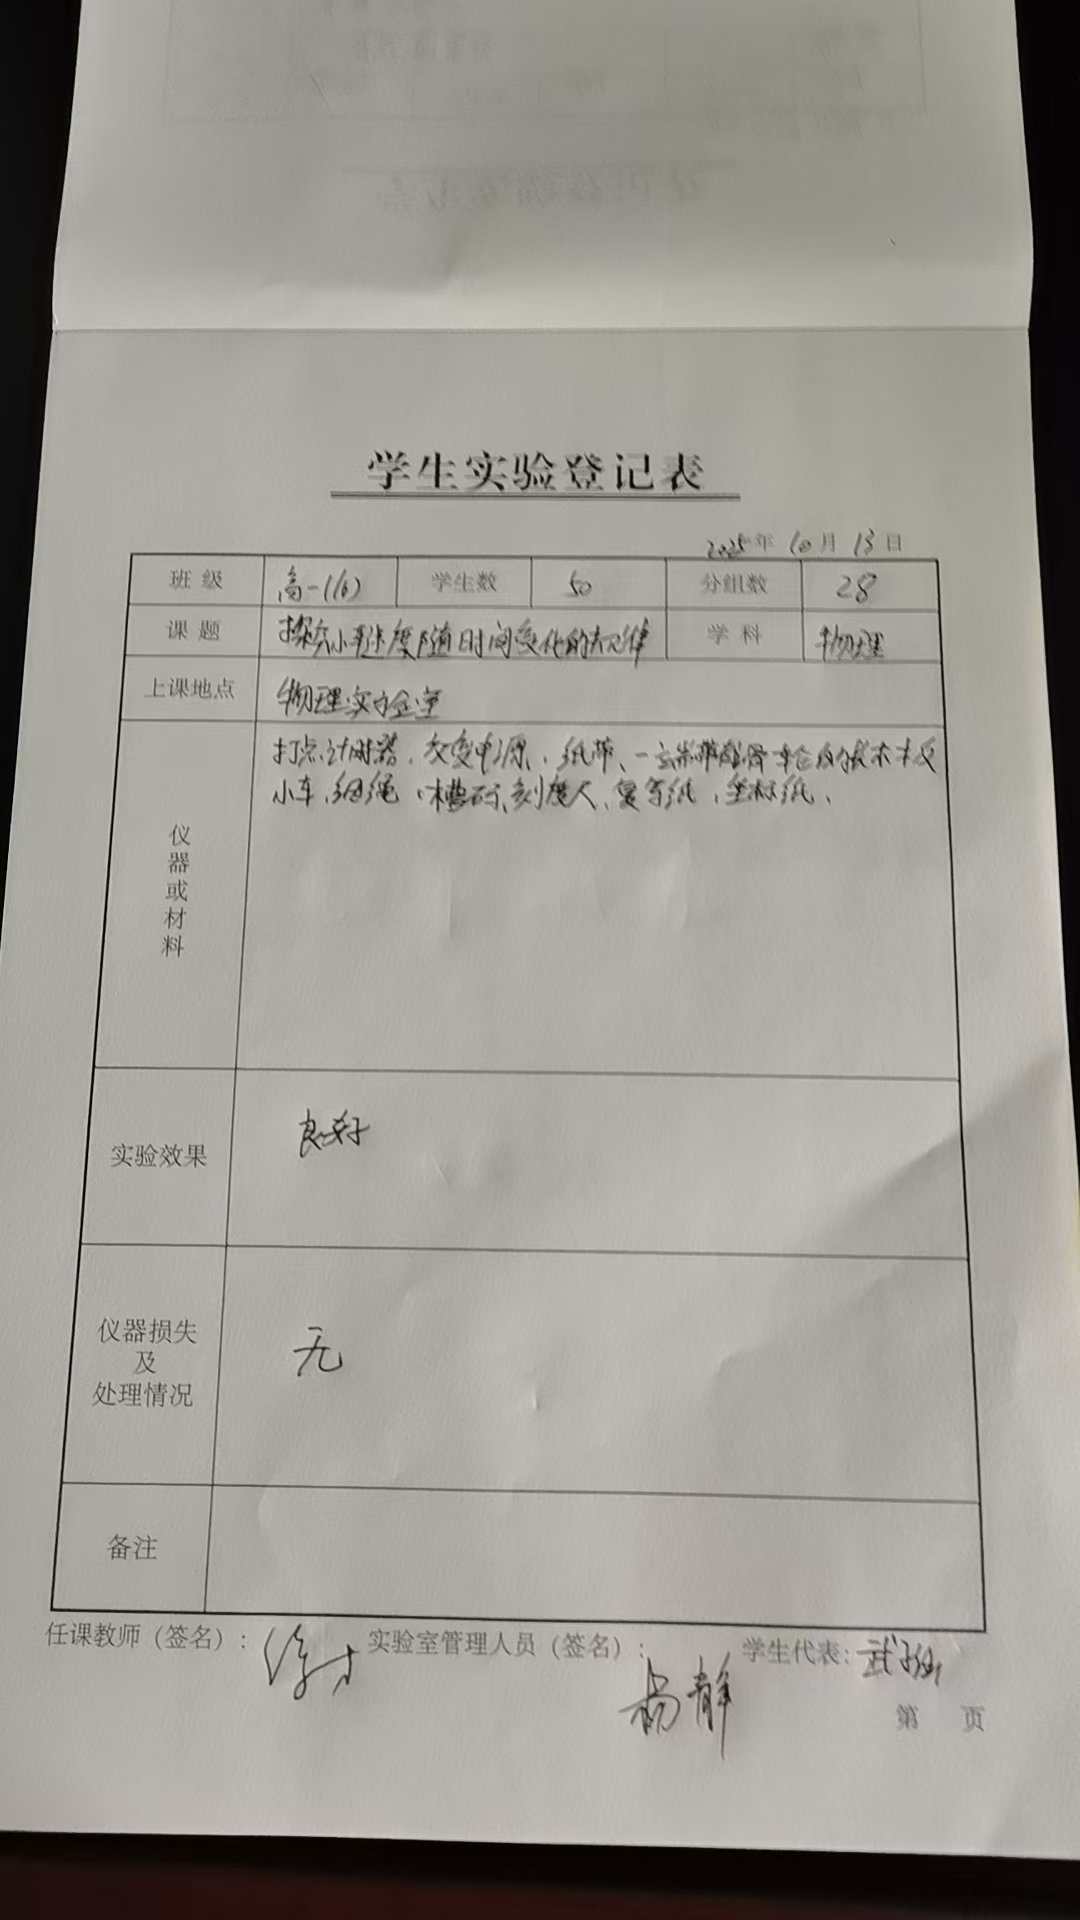 学生实验登记表
2025年 10月 13日
班 级 高一(16) 学生数 50 分组数 28
课 题 探究小车速度随时间变化的规律 学 科 物理
上课地点 物理实验室
仪器或材料 打点计时器、交变电源、纸带、一端带滑轮的长木板
小车、细绳、槽码、刻度尺、复写纸、坐标纸、
实验效果 良好
仪器损失
及
处理情况 无
备注
任课教师（签名）： 实验室管理人员（签名）：杨静 学生代表：武
第 页